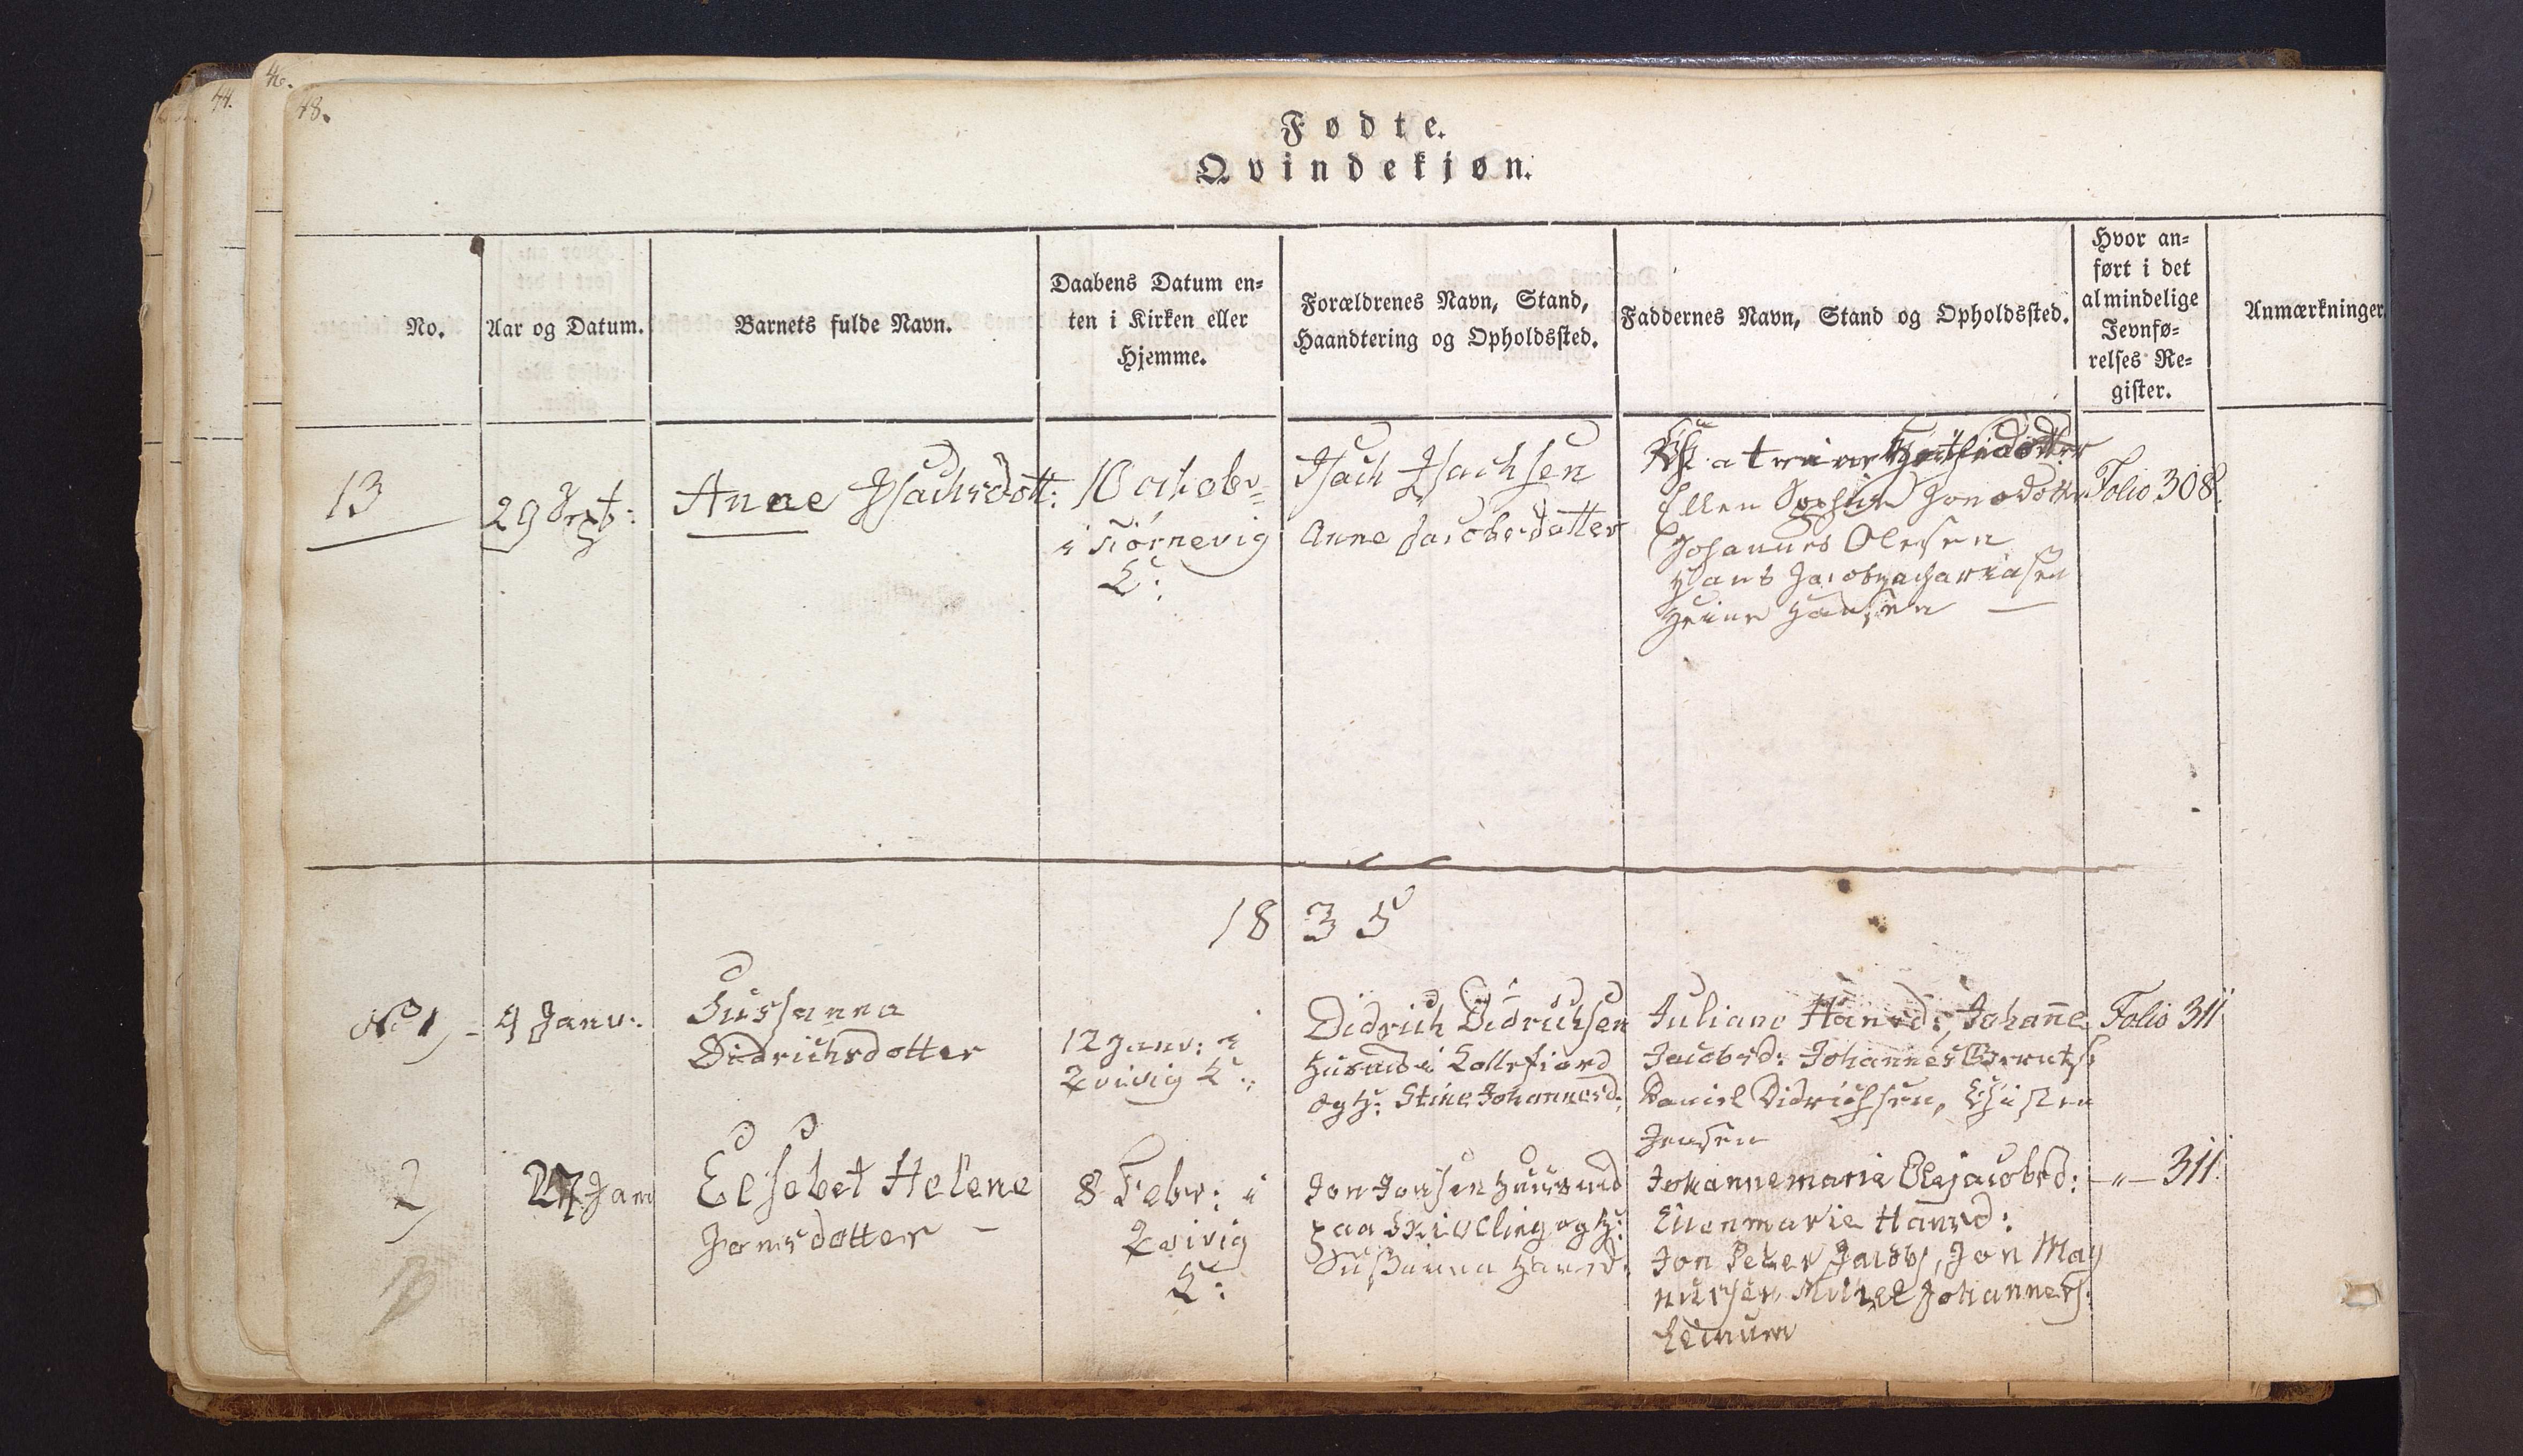 44.
46.
48.
Fødte.
Qvindekjøn.
No.
Aar og Datum.
Barnets fulde Navn.
Daabens Datum en-
ten i Kirken eller
Hjemme.
Forældrenes Navn, Stand,
Haandtering og Opholdssted.
Faddernes Navn, Stand og Opholdssted.
Hvor an-
ført i det
almindelige
Jevnfø-
relses Re-
gister.
Anmærkninger.
13
29 Sept:
Anne Isachsdott:
10 octobr
i Kiørnevig
K:
Isach Isachsen
Anne Jacobsdatter
Ellen Sophie Jonsdotter
Johannes Olesen
Hans Jacob Zachariasen
Heine Hansen —
Folio 308.
1835
No 1
4 Janv:
Sussanna
Didrichsdotter
12 Janv: i
Qvivig K:
Didrich Didrichsen
Husmd i Kollefiord
og H: Stine Johannesd:
Juliane Hansd:, Johanne
Jacobsd: Johannes
Daniel Didrichsen,
Jensen
Folio 311
2
27 Janv
Elsebet Helene
Jonsdotter —
8 Febr: i
Qvivig
K:
Jon Jonsen Huusmd
paa Skiveling og H:
Sussanna Hansd:
Johannemarie Olejacobsd:
Ellenmarie Hansd:
Jon Peter Jacobs, Jon Mag
nussen Mikkel Johannes:
— " — 311.